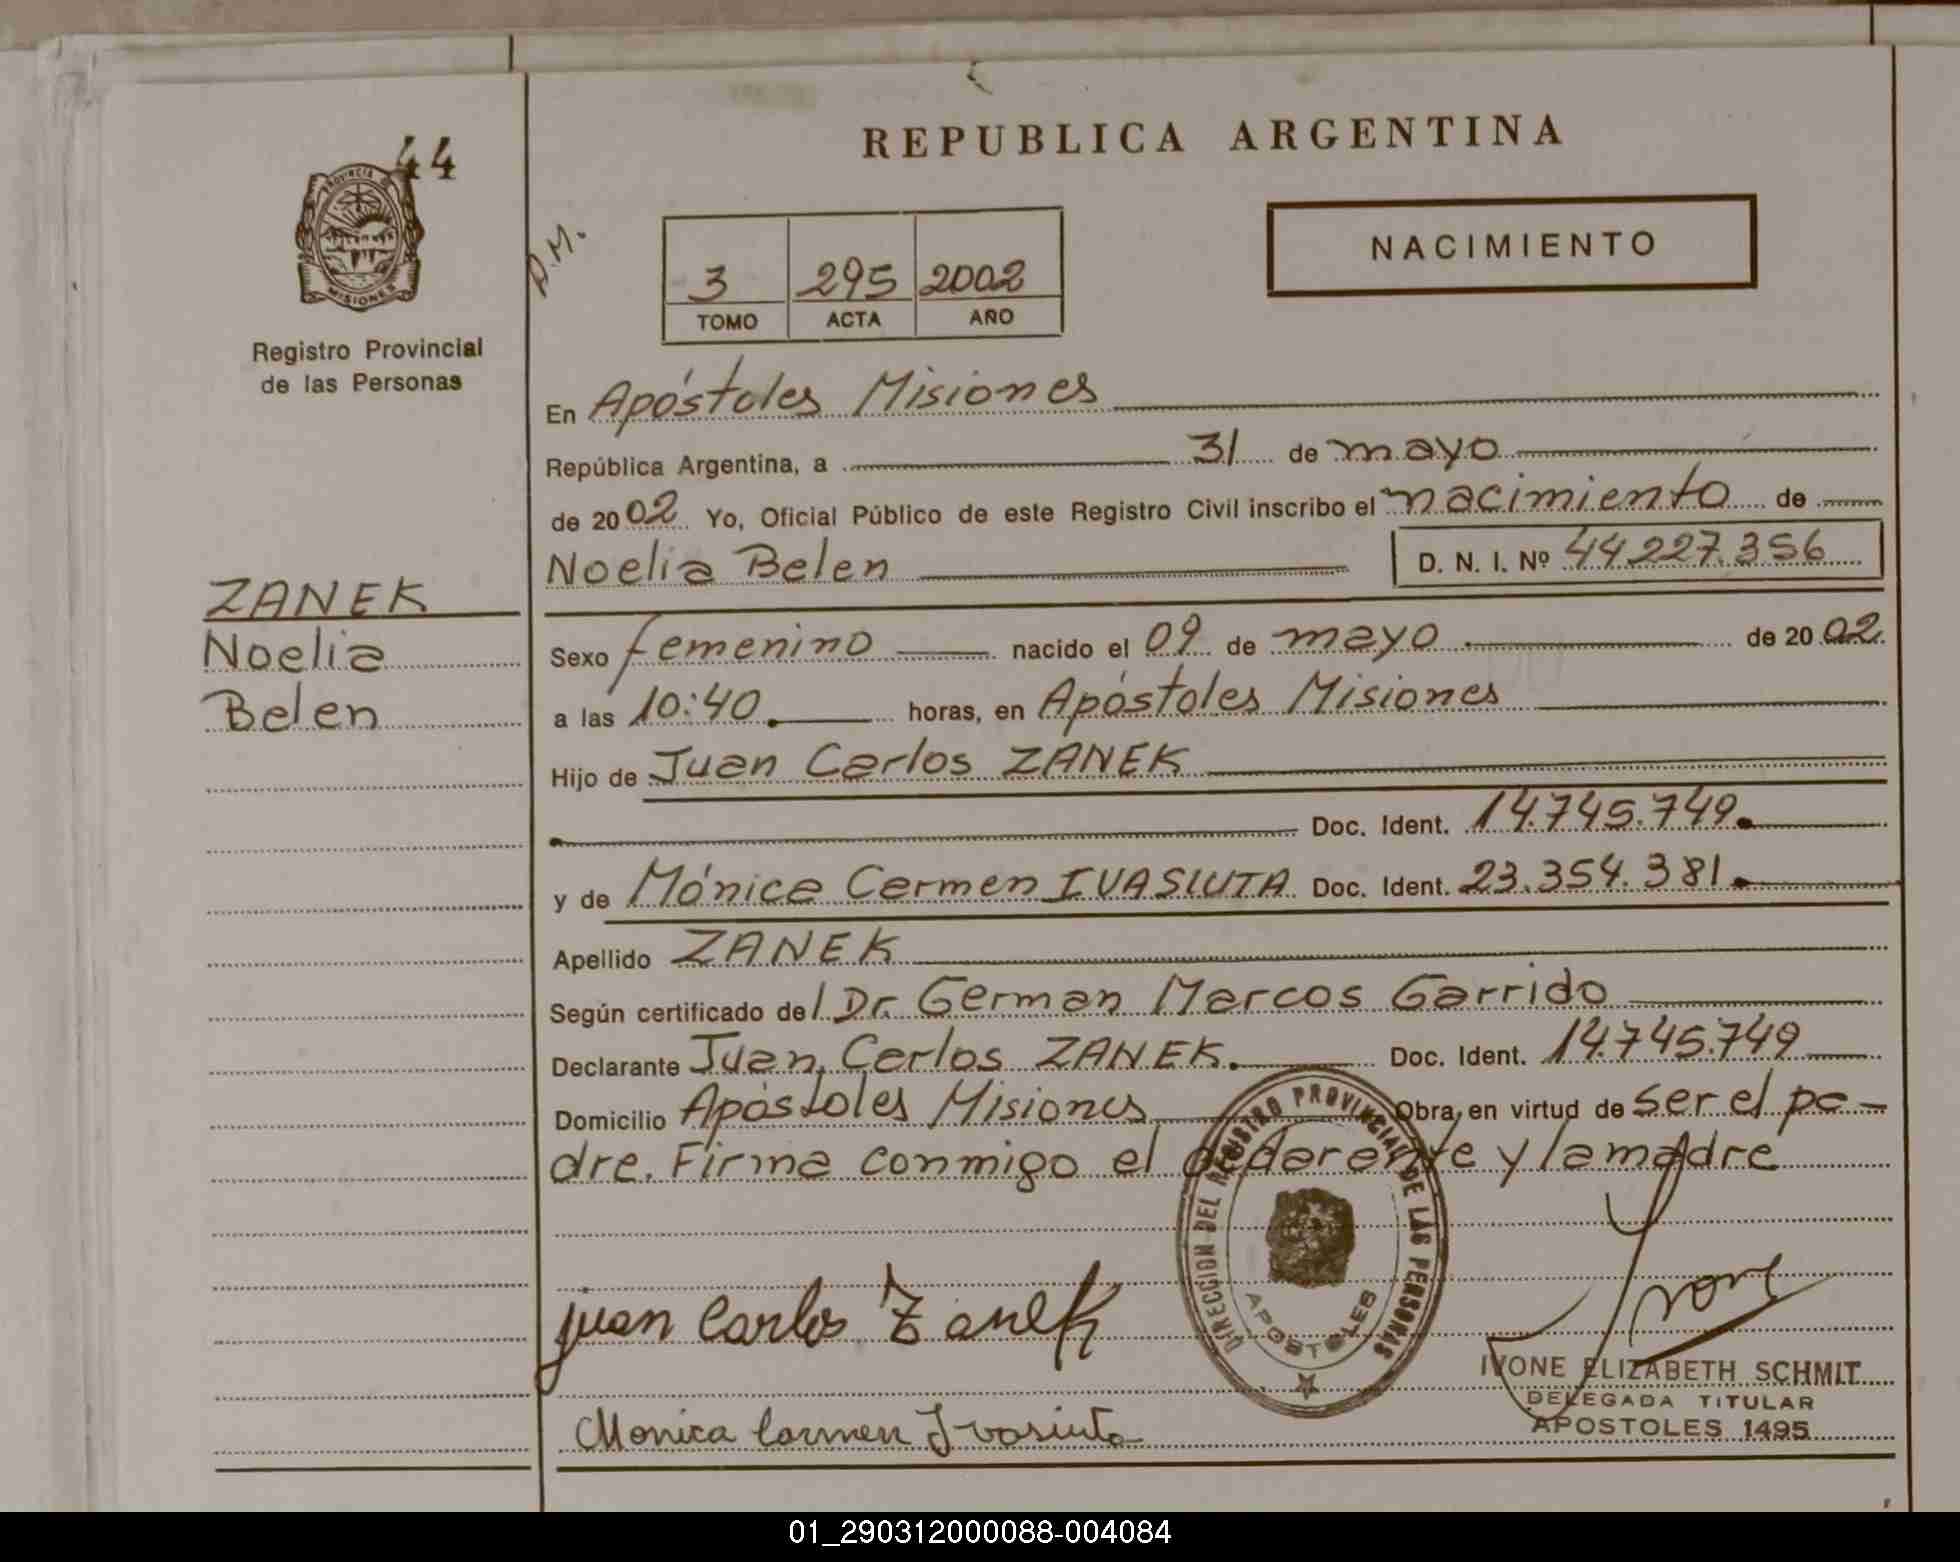 44
PROVINCIA DE
MISIONES
Registro Provincial
de las Personas
REPUBLICA ARGENTINA
D.M.
3 295 2002
TOMO ACTA AÑO
NACIMIENTO
En Apóstoles Misiones
República Argentina, a 31 de mayo
de 2002 Yo, Oficial Público de este Registro Civil inscribo el nacimiento de
Noelia Belen D. N. I. Nº 44.227.356
ZANEK
Noelia
Belen
Sexo femenino nacido el 09 de mayo de 2002
a las 10:40 horas, en Apóstoles Misiones
Hijo de Juan Carlos ZANEK
Doc. Ident. 14.745.749
y de Mónica Carmen IVASIUTA Doc. Ident. 23.354.381
Apellido ZANEK
Según certificado del Dr. German Marcos Garrido
Declarante Juan Carlos ZANEK. Doc. Ident. 14.745.749
Domicilio Apóstoles Misiones Obra, en virtud de ser el pa-
dre. Firma conmigo el declarante y la madre
DIRECCION DEL REGISTRO PROVINCIAL DE LAS PERSONAS
APOSTOLES
Juan Carlos Zanek
Ivone
IVONE ELIZABETH SCHMIT
DELEGADA TITULAR
APOSTOLES 1495
Monica Carmen Ivasiuta
01_290312000088-004084